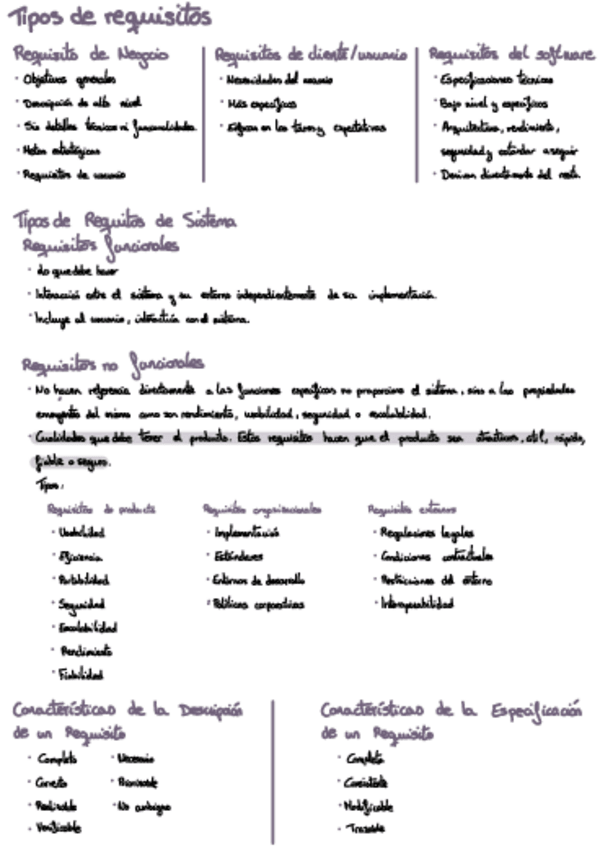 Tipos de requisitos
Requisito de Negocio
· Objetivos generales
· Descripción de alto nivel
· Sin detalles técnicos ni funcionalidades.
· Metas estratégicas
· Requisitos de usuario
Requisitos de cliente/usuario
· Necesidades del usuario
· Más específicos
· Enfocan en las tareas y expectativas
Requisitos del software
· Especificaciones técnicas
· Bajo nivel y específicos
· Arquitectura, rendimiento,
seguridad y estándar a seguir
· Derivan directamente del resto.
Tipos de Requitos de Sistema
Requisitos funcionales
· Lo que debe hacer
· Interacción entre el sistema y su entorno independientemente de su implementación.
· Incluye al usuario, interactúa con el sistema.
Requisitos no funcionales
· No hacen referencia directamente a las funciones específicas no proporciona el sistema, sino a las propiedades
emergentes del mismo como son rendimiento, usabilidad, seguridad o escalabilidad.
· Cualidades que debe tener el producto. Estos requisitos hacen que el producto sea atractivo, útil, rápido,
fiable o seguro.
Tipos:
Requisitos de producto
· Usabilidad
· Eficiencia
· Portabilidad
· Seguridad
· Escalabilidad
· Rendimiento
· Fiabilidad
Requisitos organizacionales
· Implementación
· Estándares
· Entornos de desarrollo
· Políticas corporativas
Requisitos externos
· Regulaciones legales
· Condiciones contractuales
· Restricciones del entorno
· Interoperabilidad
Características de la Descripción
de un Requisito
· Completo
· Correcto
· Realizable
· Verificable
· Necesario
· Priorizable
· No ambiguo
Características de la Especificación
de un Requisito
· Completa
· Consistente
· Modificable
· Trazable